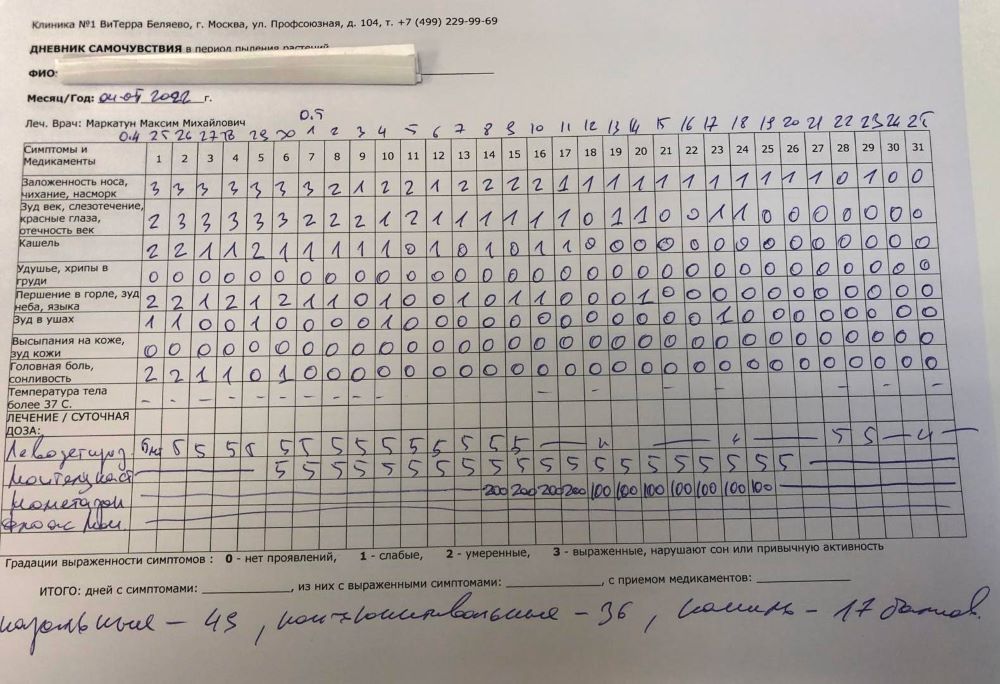 Клиника №1 ВиТерра Беляево, г. Москва, ул. Профсоюзная, д. 104, т. +7 (499) 229-99-69
ДНЕВНИК САМОЧУВСТВИЯ в период пыления растений
ФИО:
Месяц/Год: 04-05 2022 г.
Леч. Врач: Маркатун Максим Михайлович
0.5
0.4 25 26 27 28 29 30 1 2 3 4 5 6 7 8 9 10 11 12 13 14 15 16 17 18 19 20 21 22 23 24 25
Симптомы и Медикаменты 1 2 3 4 5 6 7 8 9 10 11 12 13 14 15 16 17 18 19 20 21 22 23 24 25 26 27 28 29 30 31
Заложенность носа, чихание, насморк 3 3 3 3 3 3 3 2 1 2 2 1 2 2 2 2 1 1 1 1 1 1 1 1 1 1 1 0 1 0 0
Зуд век, слезотечение, красные глаза, отечность век 2 3 3 3 3 3 2 2 2 1 2 1 1 1 1 1 1 0 1 1 0 0 1 1 0 0 0 0 0 0 0
Кашель 2 2 1 1 2 1 1 1 1 1 0 1 0 1 0 1 1 0 0 0 0 0 0 0 0 0 0 0 0 0 0
Удушье, хрипы в груди 0 0 0 0 0 0 0 0 0 0 0 0 0 0 0 0 0 0 0 0 0 0 0 0 0 0 0 0 0 0 0
Першение в горле, зуд неба, языка 2 2 1 2 1 2 1 1 0 1 0 0 1 0 1 1 0 0 0 1 0 0 0 0 0 0 0 0 0 0 0
Зуд в ушах 1 1 0 0 1 0 0 0 0 1 0 0 0 0 0 0 0 0 0 0 0 0 1 0 0 0 0 0 0 0 0
Высыпания на коже, зуд кожи 0 0 0 0 0 0 0 0 0 0 0 0 0 0 0 0 0 0 0 0 0 0 0 0 0 0 0 0 0 0 0
Головная боль, сонливость 2 2 1 1 0 1 0 0 0 0 0 0 0 0 0 0 0 0 0 0 0 0 0 0 0 0 0 0 0 0 0
Температура тела более 37 С. - - - - - - - - - - - - - - - - -
ЛЕЧЕНИЕ / СУТОЧНАЯ ДОЗА:
Левозетириз. 5мг 5 5 5 5 5 5 5 5 5 5 5 5 5 5 — и — и — 5 5 — и —
Монтелукаст 5 5 5 5 5 5 5 5 5 5 5 5 5 5 5 5 5 5 5 5
Мометазон 200 200 200 200 100 100 100 100 100 100 100
Градации выраженности симптомов : 0 - нет проявлений, 1 - слабые, 2 - умеренные, 3 - выраженные, нарушают сон или привычную активность
ИТОГО: дней с симптомами: ____________, из них с выраженными симптомами: ____________, с приемом медикаментов: ____________
назальные - 49, конъюнктивальные - 36, кашель - 17 баллов.